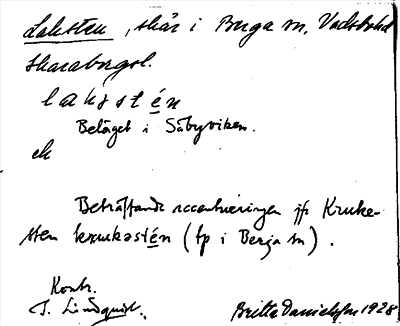 Laksten, skär i Berga sn, Vadsbohd
Skaraborgsl.
laksstén
Beläget i Säbyviken.
ek
Beträffande accentueringen jfr Kruke-
sten krukastén (tp i Berga sn).
Kontr.
J. Lindquist.
Britta Danielsson 1928